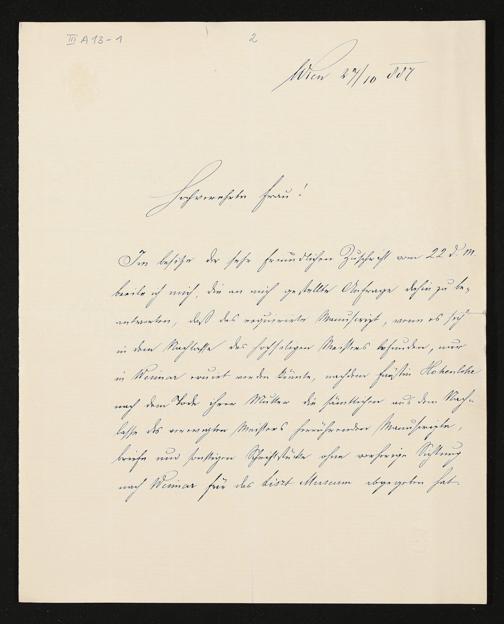 III A 13-1
2
Wien 27/10 887
Hochverehrte Frau!
Im Besitze der sehr freundlichen Zuschrift vom 22 d. M.
beeile ich mich, die an mich gestellte Anfrage dahin zu be-
antworten, daß das requirirte Manuscript, wenn es sich
in dem Nachlasse des hochseligen Meisters befunden, nur
in Weimar eruirt werden könnte, nachdem Fürstin Hohenlohe
nach dem Tode ihrer Mutter die sämtlichen aus dem Nach-
lasse des verewigten Meisters herrührenden Manuscripte,
Briefe und sonstigen Schriftstücke ohne vorherige Sichtung
nach Weimar für das Liszt Museum abgegeben hat.